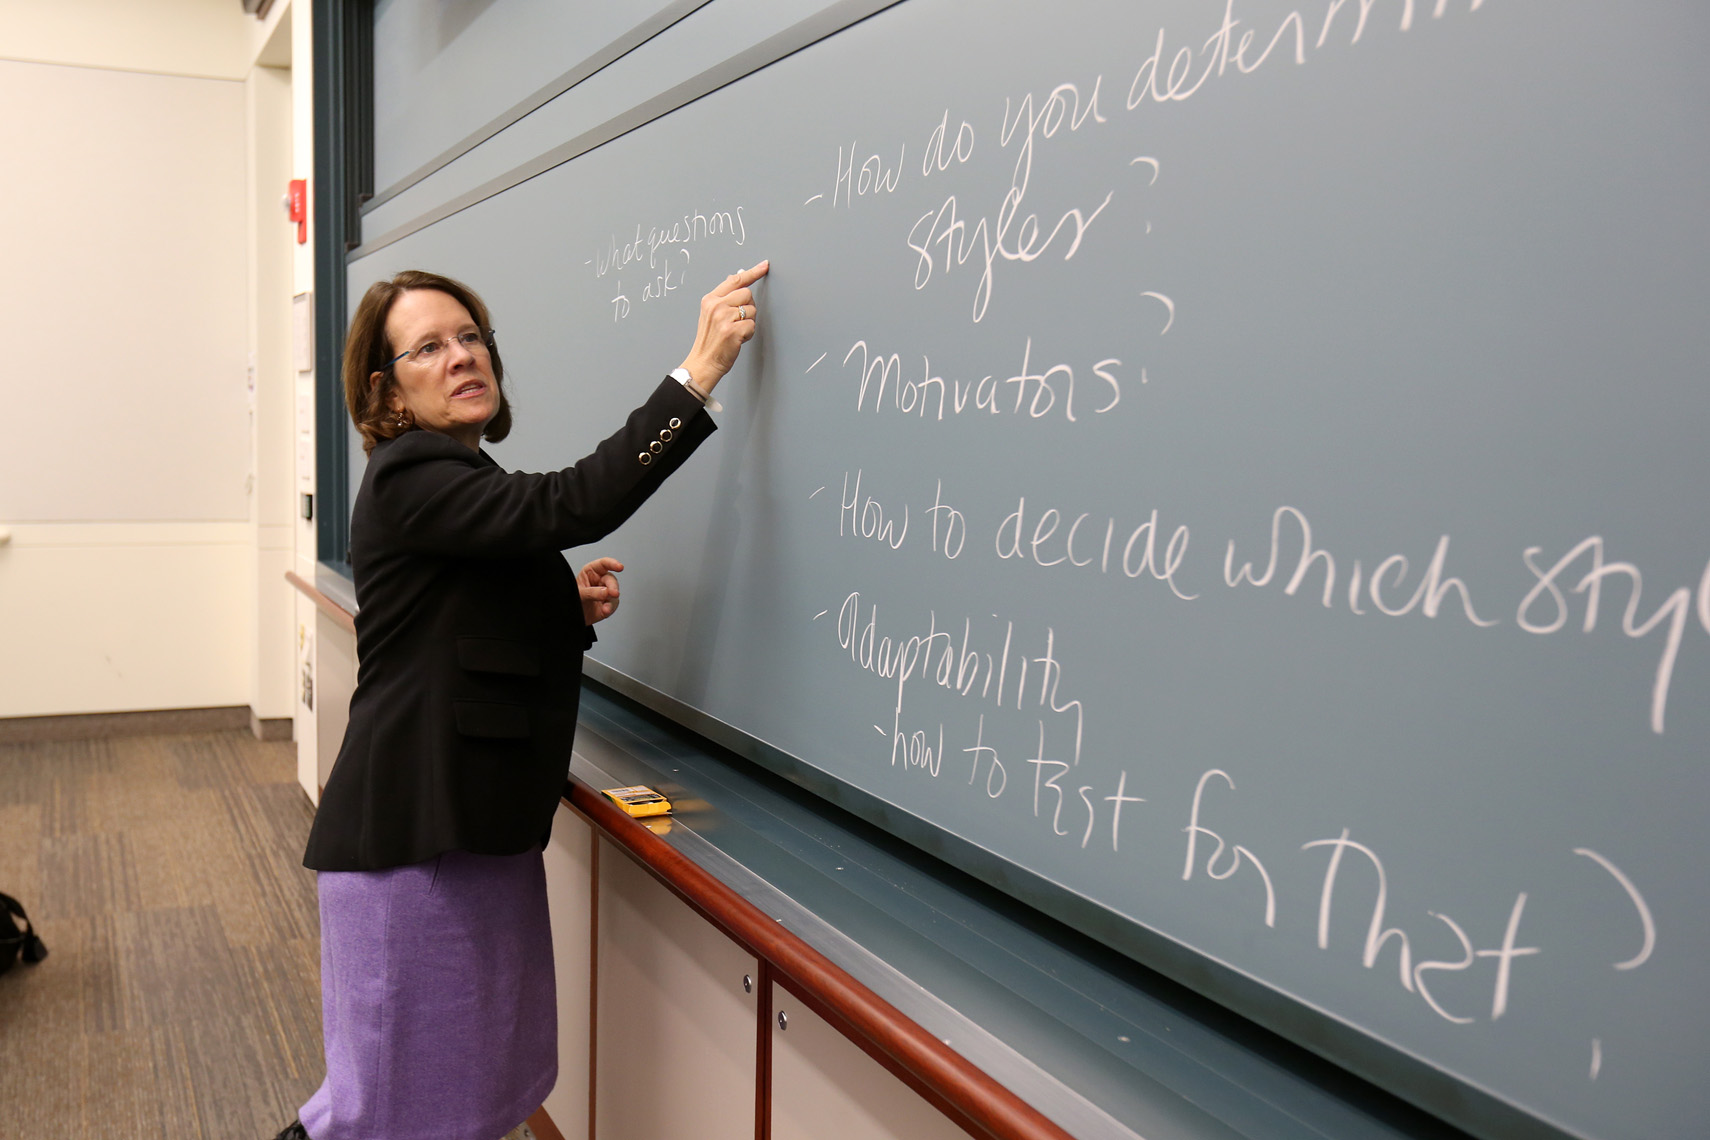 - What questions
to ask?
- How do you determin
styles?
- Motivators?
- How to decide which styl
- Adaptability
- how to test for that?